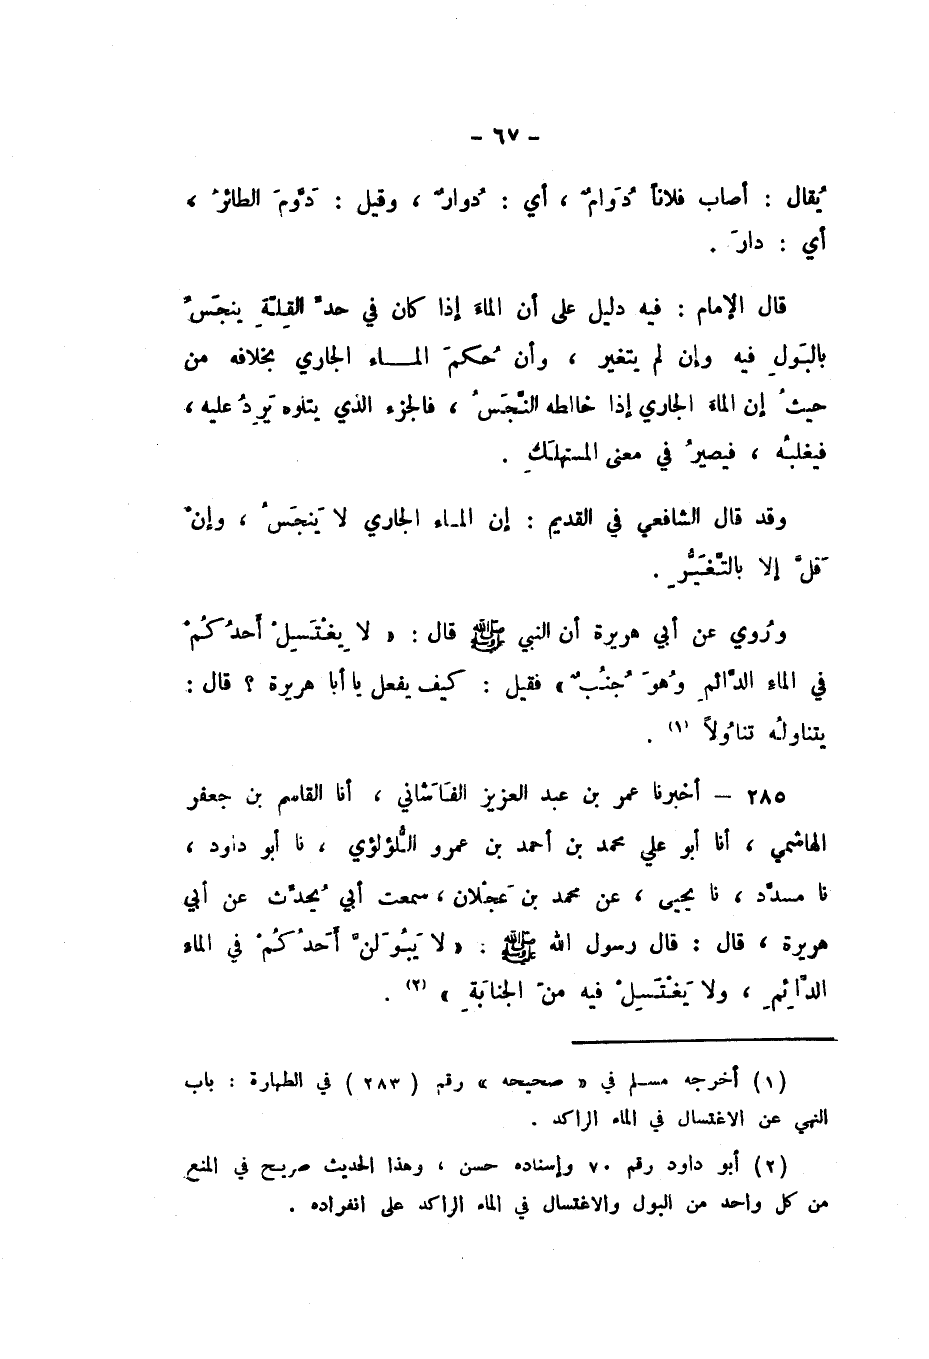 - ٦٧ -
يُقال : أصاب فلاناً دُوَامٌ ، أي : دُوارٌ ، وقيل : دَوَّمَ الطائرُ ،
أي : دارَ .
قال الإمام : فيه دليل على أن الماءَ إذا كان في حدِّ القِلَّةِ ينجَسُ
بالبَولِ فيه وإن لم يتغير ، وأن حُكمَ المـــاء الجاري بخلافه من
حيثُ إن الماءَ الجاري إذا خالطه النَّجَسُ ، فالجزء الذي يتلوه يَرِدُ عليه ،
فيغلبُه ، فيصيرُ في معنى المستهلَكِ .
وقد قال الشافعي في القديم : إن المـاء الجاري لا يَنجَسُ ، وإنْ
قَلَّ إلا بالتَّغَيُّرِ .
ورُوي عن أبي هريرة أن النبي ﷺ قال : « لا يغْتَسِلْ أَحدُكُمْ
في الماء الدَّائمِ وهُوَ جُنُبٌ » فقيل : كيف يفعل يا أبا هريرة ؟ قال :
يتناولُه تناوُلاً (١) .
٢٨٥ – أخبرنا عمر بن عبد العزيز الفَاشَاني ، أنا القاسم بن جعفر
الهاشمي ، أنا أبو علي محمد بن أحمد بن عمرو اللُّؤلؤي ، نا أبو داود ،
نا مسدَّد ، نا يحيى ، عن محمد بن عَجْلان ، سمعت أبي يُحِدَّث عن أبي
هريرة ، قال : قال رسول الله ﷺ : « لا يَبُولَنْ أَحَدُكُمْ في الماء
الدَّائِمِ ، ولا يَغْتَسِلْ فيه منَ الجنابَةِ » (٢) .
(١) أخرجه مسـلم في « صحيحه » رقم ( ٢٨٣ ) في الطهارة : باب
النهي عن الاغتسال في الماء الراكد .
(٢) أبو داود رقم ٧٠ وإسناده حسن ، وهذا الحديث صريح في المنع
من كل واحد من البول والاغتسال في الماء الراكد على انفراده .